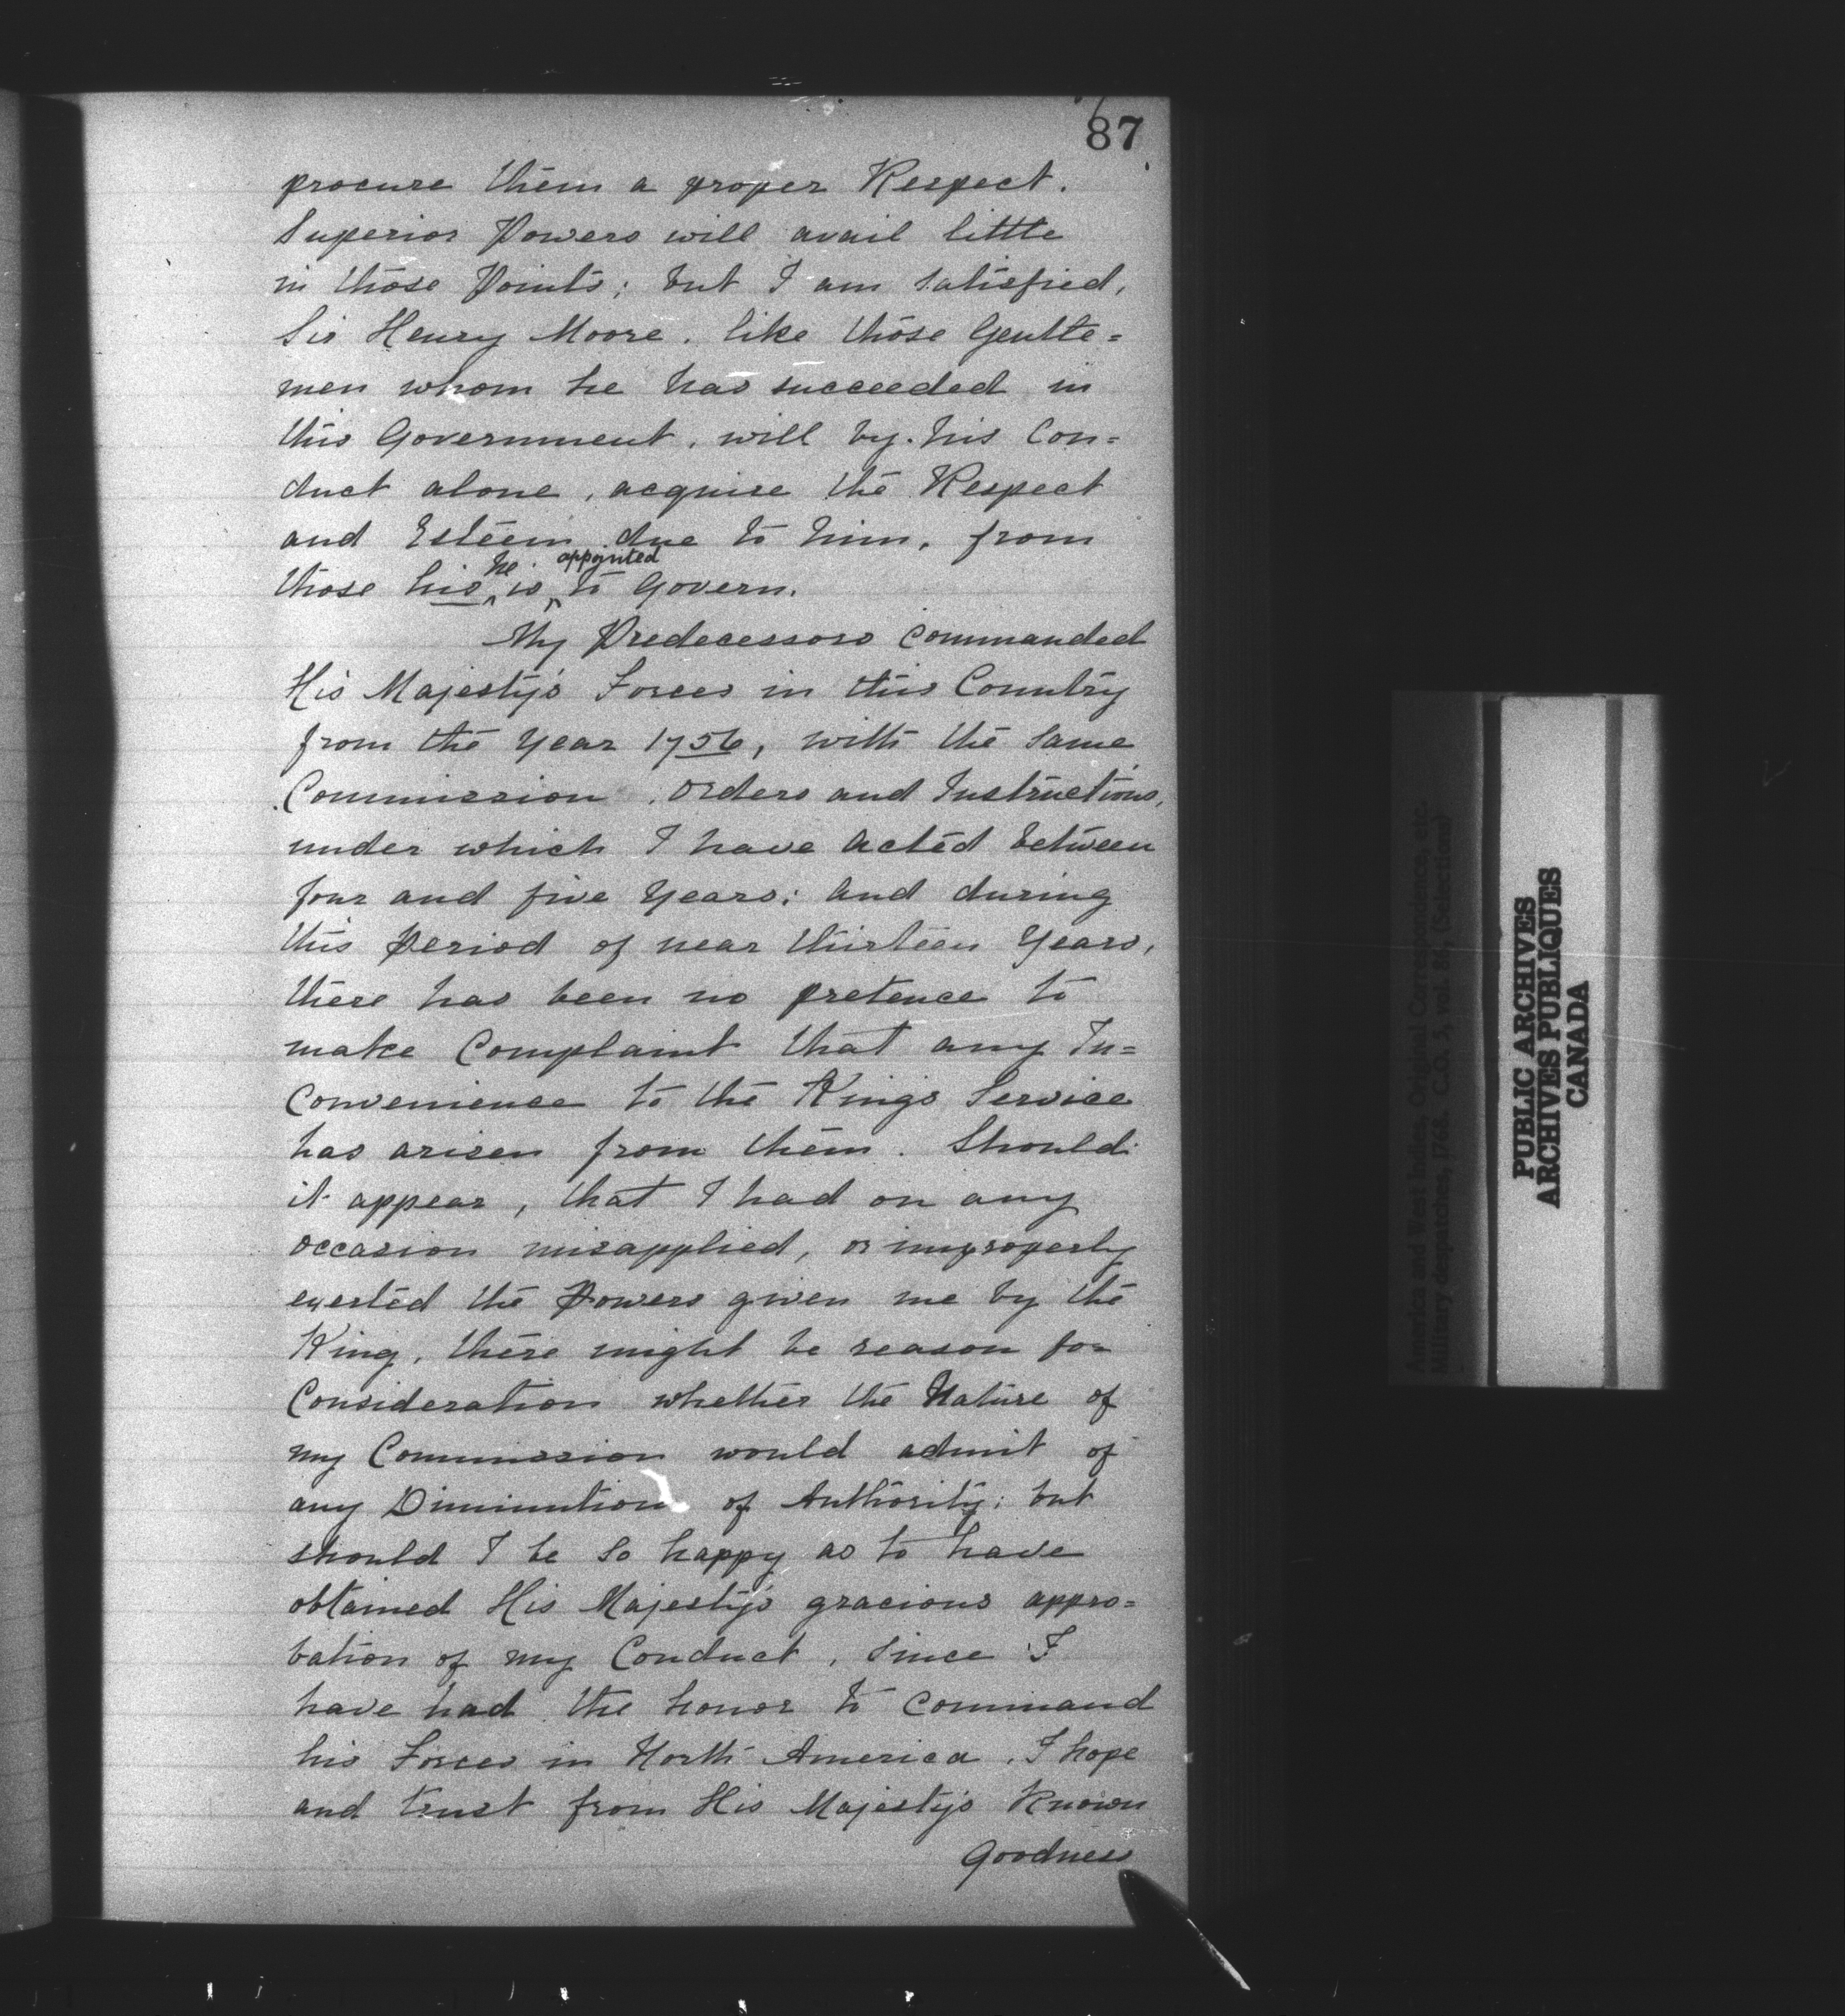 87
procure them a proper Respect.
Superior Powers will avail little
in those Points; but I am satisfied,
Sir Henry Moore, like those Gentle=
men whom he has succeeded in
this Government, will by his Con=
duct alone, acquire the Respect
and Esteem due to him, from
he appointed
those his is to Govern.
My Predecessors commanded
His Majesty's Forces in this Country
from the Year 1756, with the same
Commission, Orders and Instructions,
under which I have acted between
four and five Years; and during
this Period of near thirteen Years,
there has been no pretence to
make Complaint that any In=
convenience to the King's Service
has arisen from them. Should
it appear, that I had on any
occasion misapplied, or improperly
exerted the Powers given me by the
King, there might be reason for
Consideration whether the Nature of
my Commission would admit of
any Diminution of Authority; but
should I be so happy as to have
obtained His Majesty's gracious appro=
bation of my Conduct, since I
have had the honor to command
his Forces in North America, I hope
and trust from His Majesty's known
Goodness
America and West Indies, Original Correspondence, etc.
Military despatches, 1768. C.O. 5, vol. 86, (Selections)
PUBLIC ARCHIVES
ARCHIVES PUBLIQUES
CANADA